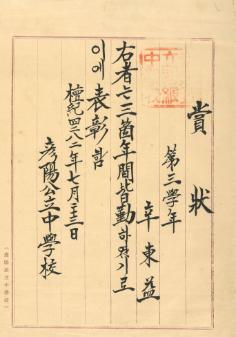 賞狀
第三學年
辛東益
右者는三箇年間皆勤하였기로
이에表彰함
檀紀四二八二年七月二十三日
彦陽公立中學校